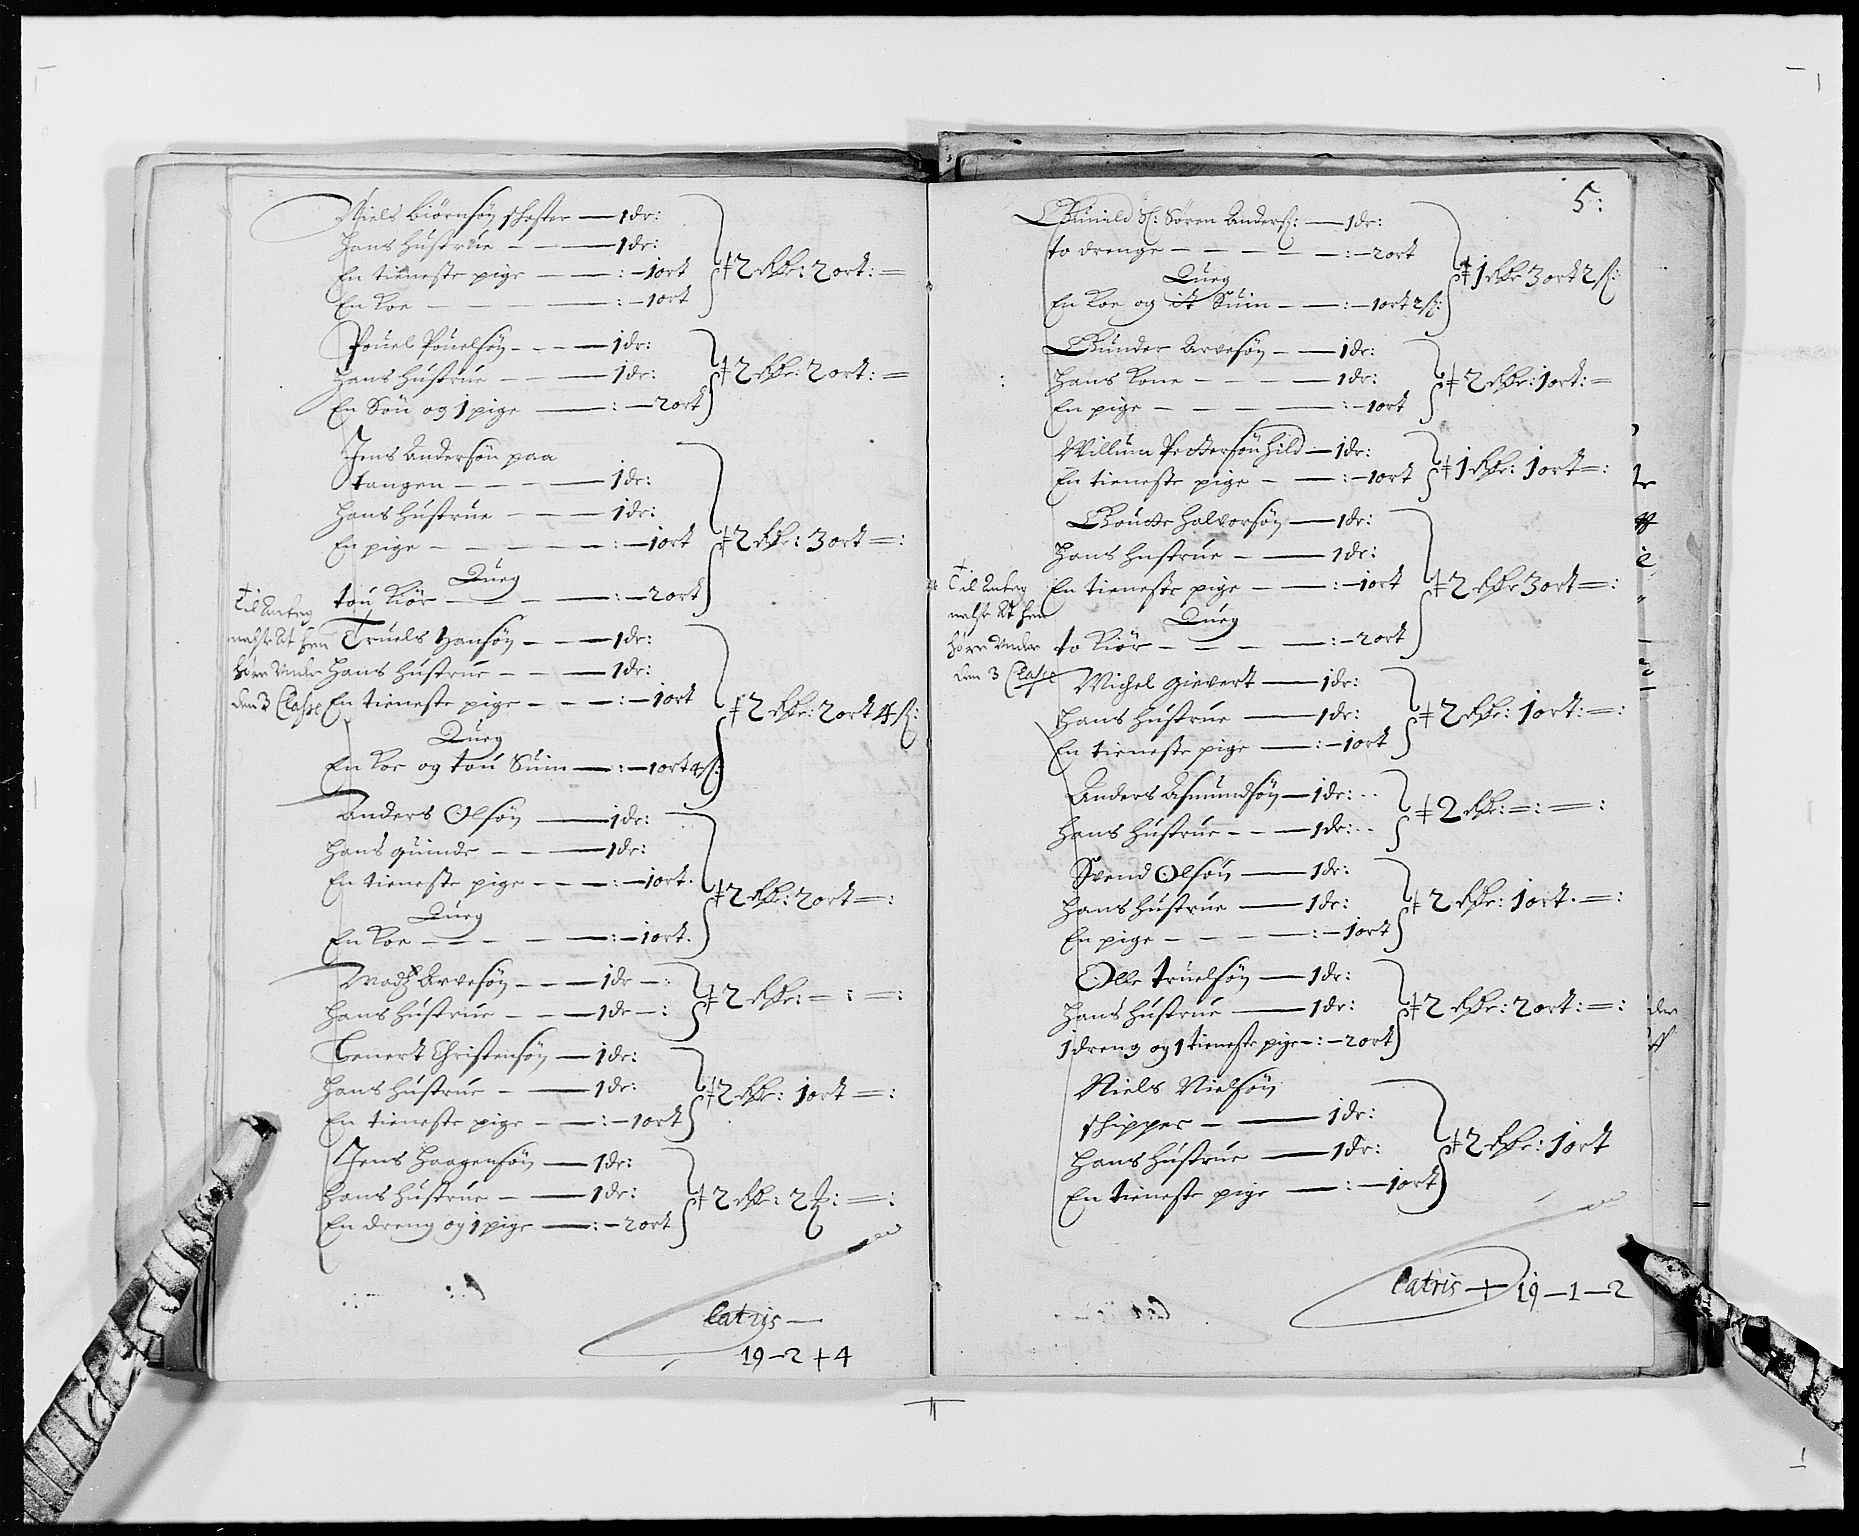 Niels Biørnsøn shoster — 1 dr:
Hans Hustrue — — — 1 dr:
En tieneste pige — — : — 1 ort
En Koe — — — : — 1 ort
‡ 2 Rdr: 2 ort: =
Pouel Pouelsøn — — 1 dr:
Hans Hustrue — — — 1 dr:
En Søn og 1 pige — : — 2 ort
‡ 2 Rdr: 2 ort: =
Jens Andersøn paa
tangen — — — 1 dr:
Hans Hustrue — — 1 dr:
En pige — — — : — 1 ort
Queg
tou Kiør — — — : — 2 ort
‡ 2 Rdr: 3 ort = :
Truels Hansøn — — 1 dr:
Hans Hustrue — — 1 dr:
En tieneste pige — — : — 1 ort
Queg
En Koe og tou Suin — : — 1 ort 4 ß:
‡ 2 Rdr: 2 ort 4 ß:
hører Under
den 3 Classe
Anders Olsøn — 1 dr:
Hans quinde — — 1 dr:
En tieneste pige — — : — 1 ort.
Queg
En Koe — — — : — 1 ort.
‡ 2 Rdr: 2 ort = :
Madz Arvesøn — — 1 dr — :
Hans Hustrue — — 1 dr — :
‡ 2 Rdr: = : = :
Lenert Christensøn — 1 dr:
Hans Hustrue — — 1 dr:
En tieneste pige — — : — 1 ort
‡ 2 Rdr: 1 ort = :
Jens Haagensøn — 1 dr:
Hans Hustrue — — 1 dr:
En dreng og 1 pige — : — 2 ort
‡ 2 Rdr: 2 : = :
Latris —
19 — 2 + 4
5:
Gunild Sl: Søren Anders: — 1 dr:
to drenge — — — : — 2 ort
Queg
En Koe og it Suin — — : — 1 ort 2 ß:
‡ 1 Rdr 3 ort 2 ß:
Gunder Arvesøn — — 1 dr:
Hans Kone — — — 1 dr:
En pige — — — : — 1 ort
‡ 2 Rdr: 1 ort: =
Willum Pettersøn Hild — 1 dr:
En tieneste pige — — : — 1 ort
‡ 1 Rdr: 1 ort = :
Goutte Halvorsøn — 1 dr:
Hans Hustrue — — 1 dr:
En tieneste pige — — : — 1 ort
Queg
to Kiør — — — : — 2 ort
‡ 2 Rdr 3 ort = :
hører Under
den 3 Classe
Michel Gievert — 1 dr:
Hans Hustrue — 1 dr:
En tieneste pige — : — 1 ort
‡ 2 Rdr: 1 ort: = :
Anders Asmundsøn — 1 dr:
Hans Hustrue — — 1 dr:
‡ 2 Rdr: = : = :
Svend Olsøn — 1 dr:
Hans Hustrue — 1 dr:
En pige — — — : — 1 ort
‡ 2 Rdr: 1 ort. = :
Olle Truelsøn — 1 dr:
Hans Hustrue — 1 dr:
1 dreng og 1 tieneste pige — : — 2 ort
‡ 2 Rdr: 2 ort: = :
Niels Nielsøn
shipper — — 1 dr:
Hans Hustrue — 1 dr:
En tieneste pige — : — 1 ort
‡ 2 Rdr: 1 ort
Latris — + 19 — 1 — 2